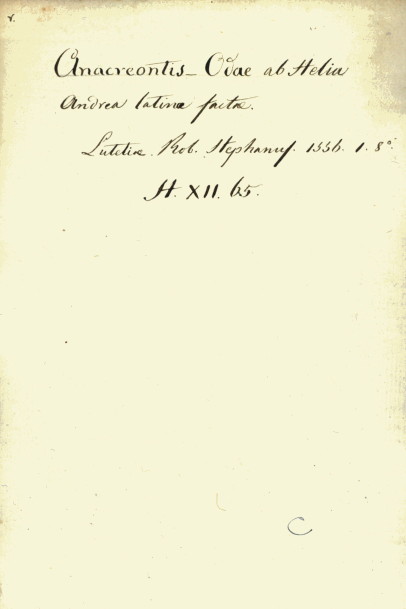 r.
Anacreontis - Odae ab Helia
Andrea latinæ factæ.
Lutetiæ. Rob. Stephanus. 1556. 1. 8°.
H. XII. 65.
C